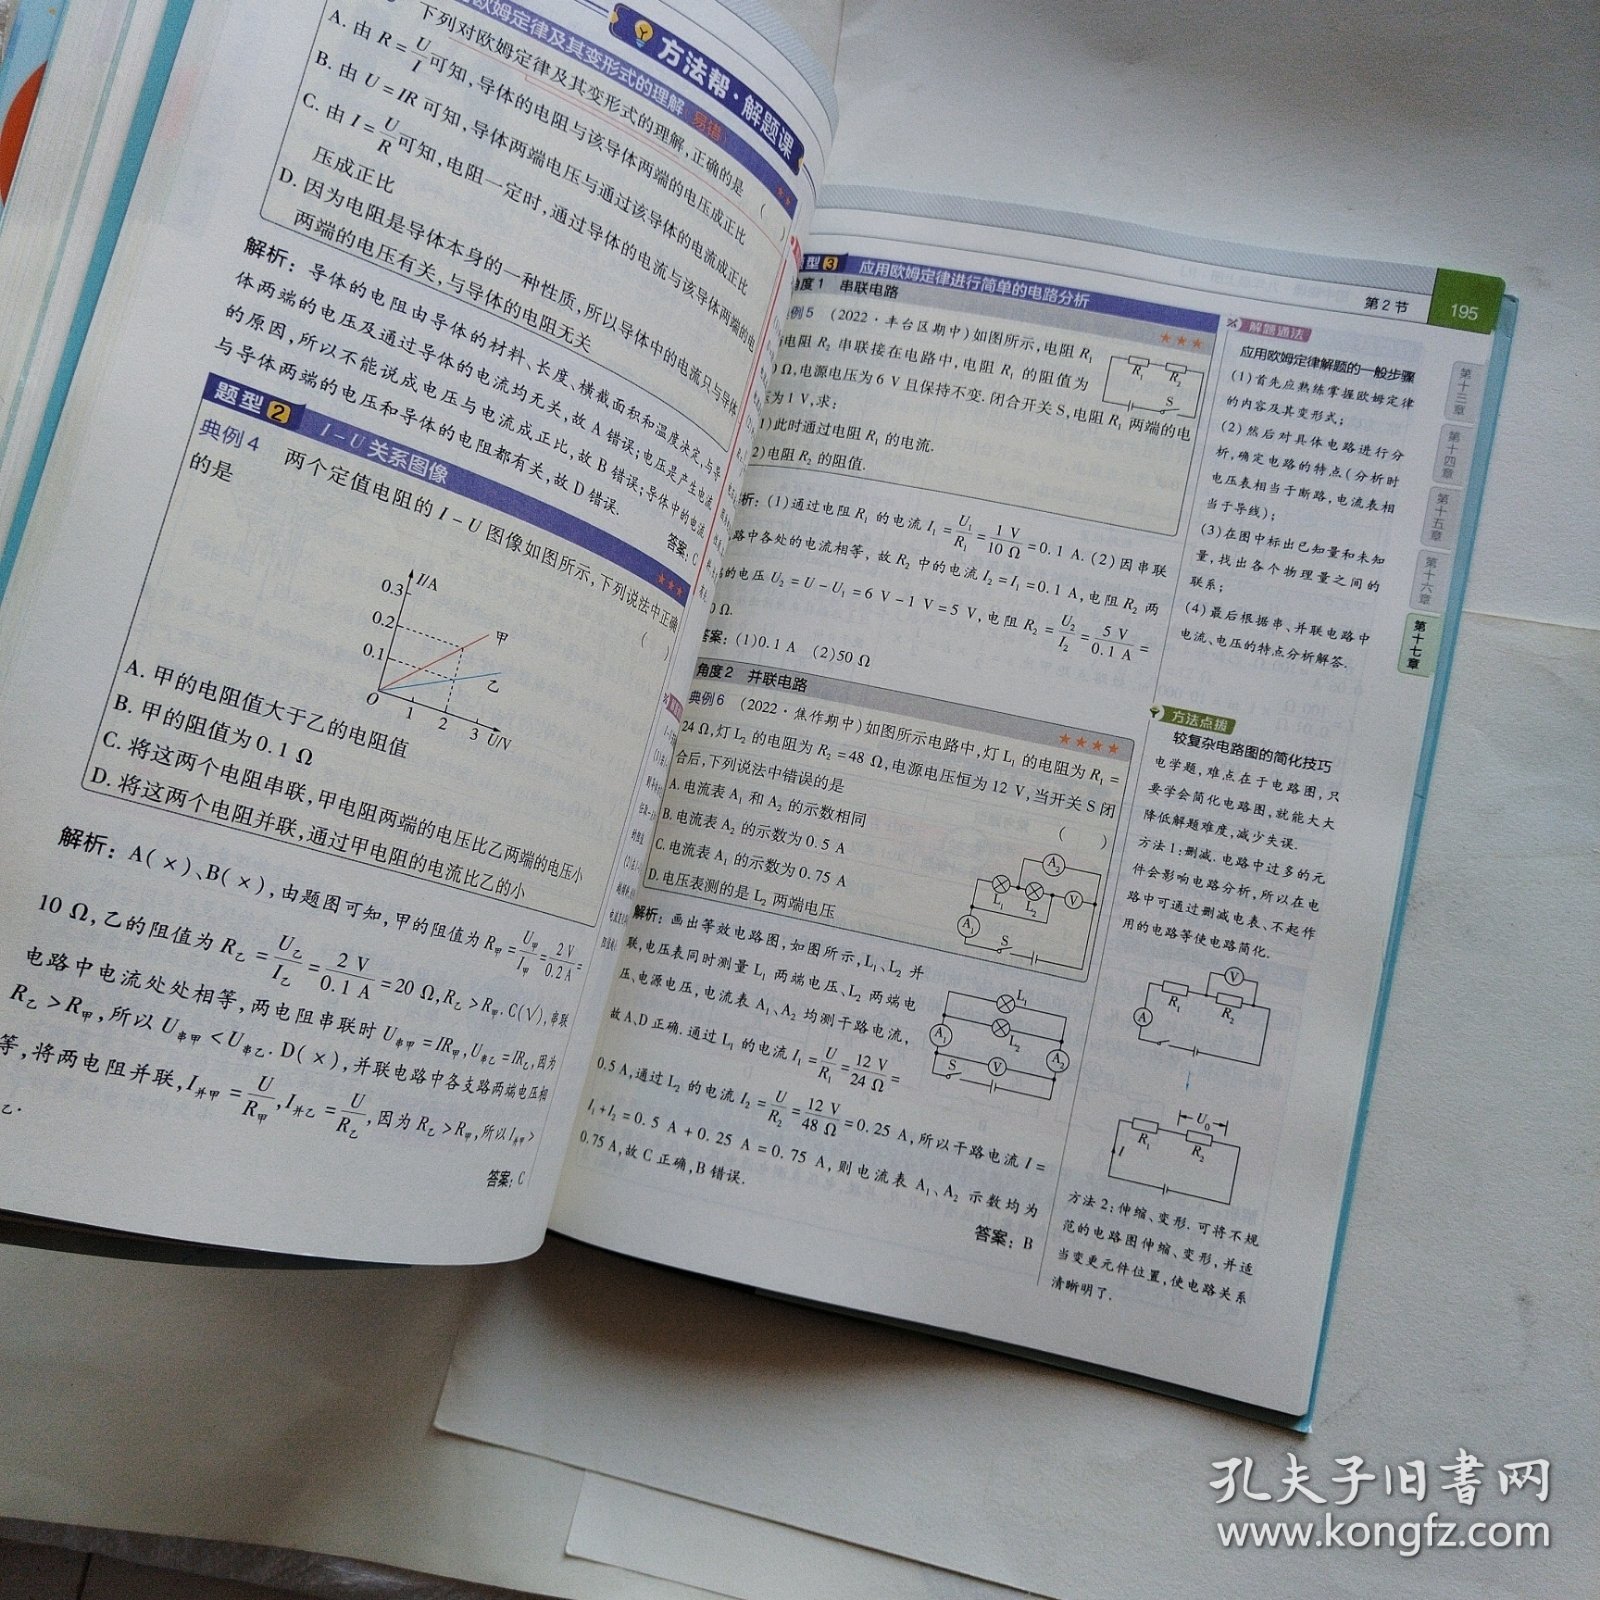 方法帮·解题课
欧姆定律及其变形式的理解 易错
下列对欧姆定律及其变形式的理解,正确的是
( )
A. 由R=U/I可知,导体的电阻与该导体两端的电压成正比
B. 由U=IR可知,导体两端电压与通过该导体的电流成正比
C. 由I=U/R可知,电阻一定时,通过导体的电流与该导体两端的电
压成正比
D. 因为电阻是导体本身的一种性质,所以导体中的电流只与导体
两端的电压有关,与导体的电阻无关
解析:导体的电阻由导体的材料、长度、横截面积和温度决定,与导
体两端的电压及通过导体的电流均无关,故A错误;电压是产生电流
的原因,所以不能说成电压与电流成正比,故B错误;导体中的电流
与导体两端的电压和导体的电阻都有关,故D错误.
答案:C
题型2 I-U关系图像
★★★
典例4 两个定值电阻的I-U图像如图所示,下列说法中正确
的是
( )
I/A
0.3
0.2
0.1
甲
乙
O 1 2 3 U/V
A. 甲的电阻值大于乙的电阻值
B. 甲的阻值为0.1 Ω
C. 将这两个电阻串联,甲电阻两端的电压比乙两端的电压小
D. 将这两个电阻并联,通过甲电阻的电流比乙的小
解析:A(×)、B(×),由题图可知,甲的阻值为R甲=U甲/I甲=2 V/0.2 A=
10 Ω,乙的阻值为R乙=U乙/I乙=2 V/0.1 A=20 Ω,R乙>R甲.C(√),串联
电路中电流处处相等,两电阻串联时U串甲=IR甲,U串乙=IR乙,因为
R乙>R甲,所以U串甲<U串乙.D(×),并联电路中各支路两端电压相
等,将两电阻并联,I并甲=U/R甲,I并乙=U/R乙,因为R乙>R甲,所以I并甲>
乙.
答案:C
第2节 195
型3 应用欧姆定律进行简单的电路分析
角度1 串联电路
★★★
例5 (2022·丰台区期中)如图所示,电阻R1
电阻R2串联接在电路中,电阻R1的阻值为
0 Ω,电源电压为6 V且保持不变.闭合开关S,电阻R1两端的电
压为1 V,求:
1)此时通过电阻R1的电流.
2)电阻R2的阻值.
R1 R2
S
析:(1)通过电阻R1的电流I1=U1/R1=1 V/10 Ω=0.1 A.(2)因串联
路中各处的电流相等,故R2中的电流I2=I1=0.1 A,电阻R2两
的电压U2=U-U1=6 V-1 V=5 V,电阻R2=U2/I2=5 V/0.1 A=
0 Ω.
答案:(1)0.1 A (2)50 Ω
角度2 并联电路
★★★★
典例6 (2022·焦作期中)如图所示电路中,灯L1的电阻为R1=
24 Ω,灯L2的电阻为R2=48 Ω,电源电压恒为12 V,当开关S闭
合后,下列说法中错误的是
( )
A. 电流表A1和A2的示数相同
B. 电流表A2的示数为0.5 A
C. 电流表A1的示数为0.75 A
D. 电压表测的是L2两端电压
A2
L1 L2 V
A1
S
解析:画出等效电路图,如图所示,L1、L2并
联,电压表同时测量L1两端电压、L2两端电
压、电源电压,电流表A1、A2均测干路电流,
故A、D正确.通过L1的电流I1=U/R1=12 V/24 Ω=
0.5 A,通过L2的电流I2=U/R2=12 V/48 Ω=0.25 A,所以干路电流I=
I1+I2=0.5 A+0.25 A=0.75 A,则电流表A1、A2示数均为
0.75 A,故C正确,B错误.
答案:B
L1
L2
A1 A2
S V
解题通法
应用欧姆定律解题的一般步骤
(1)首先应熟练掌握欧姆定律
的内容及其变形式;
(2)然后对具体电路进行分
析,确定电路的特点(分析时
电压表相当于断路,电流表相
当于导线);
(3)在图中标出已知量和未知
量,找出各个物理量之间的
联系;
(4)最后根据串、并联电路中
电流、电压的特点分析解答.
方法点拨
较复杂电路图的简化技巧
电学题,难点在于电路图,只
要学会简化电路图,就能大大
降低解题难度,减少失误.
方法1:删减.电路中过多的元
件会影响电路分析,所以在电
路中可通过删减电表、不起作
用的电路等使电路简化.
V
R1 R2
A
U0
R1 R2
I
方法2:伸缩、变形.可将不规
范的电路图伸缩、变形,并适
当变更元件位置,使电路关系
清晰明了.
第十三章
第十四章
第十五章
第十六章
第十七章
孔夫子旧书网
www.kongfz.com